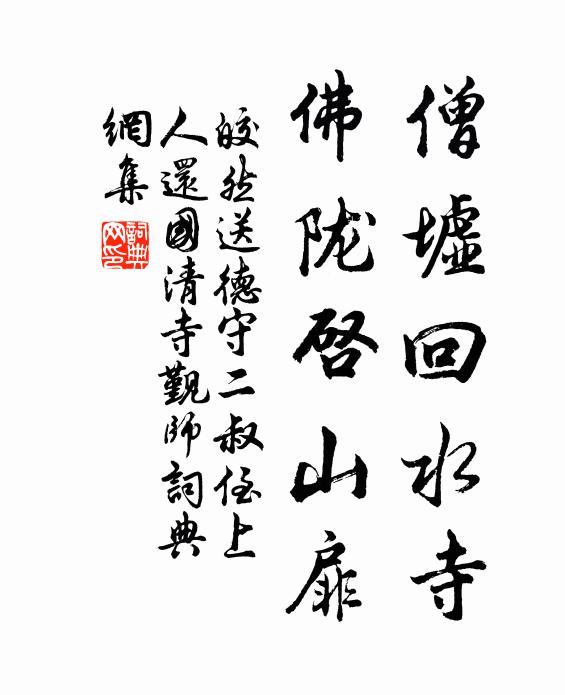 僧墟回水寺
佛陇啓山扉
皎然送德守二叔侄上
人還國清寺觐師詞典
網集
詞典网印